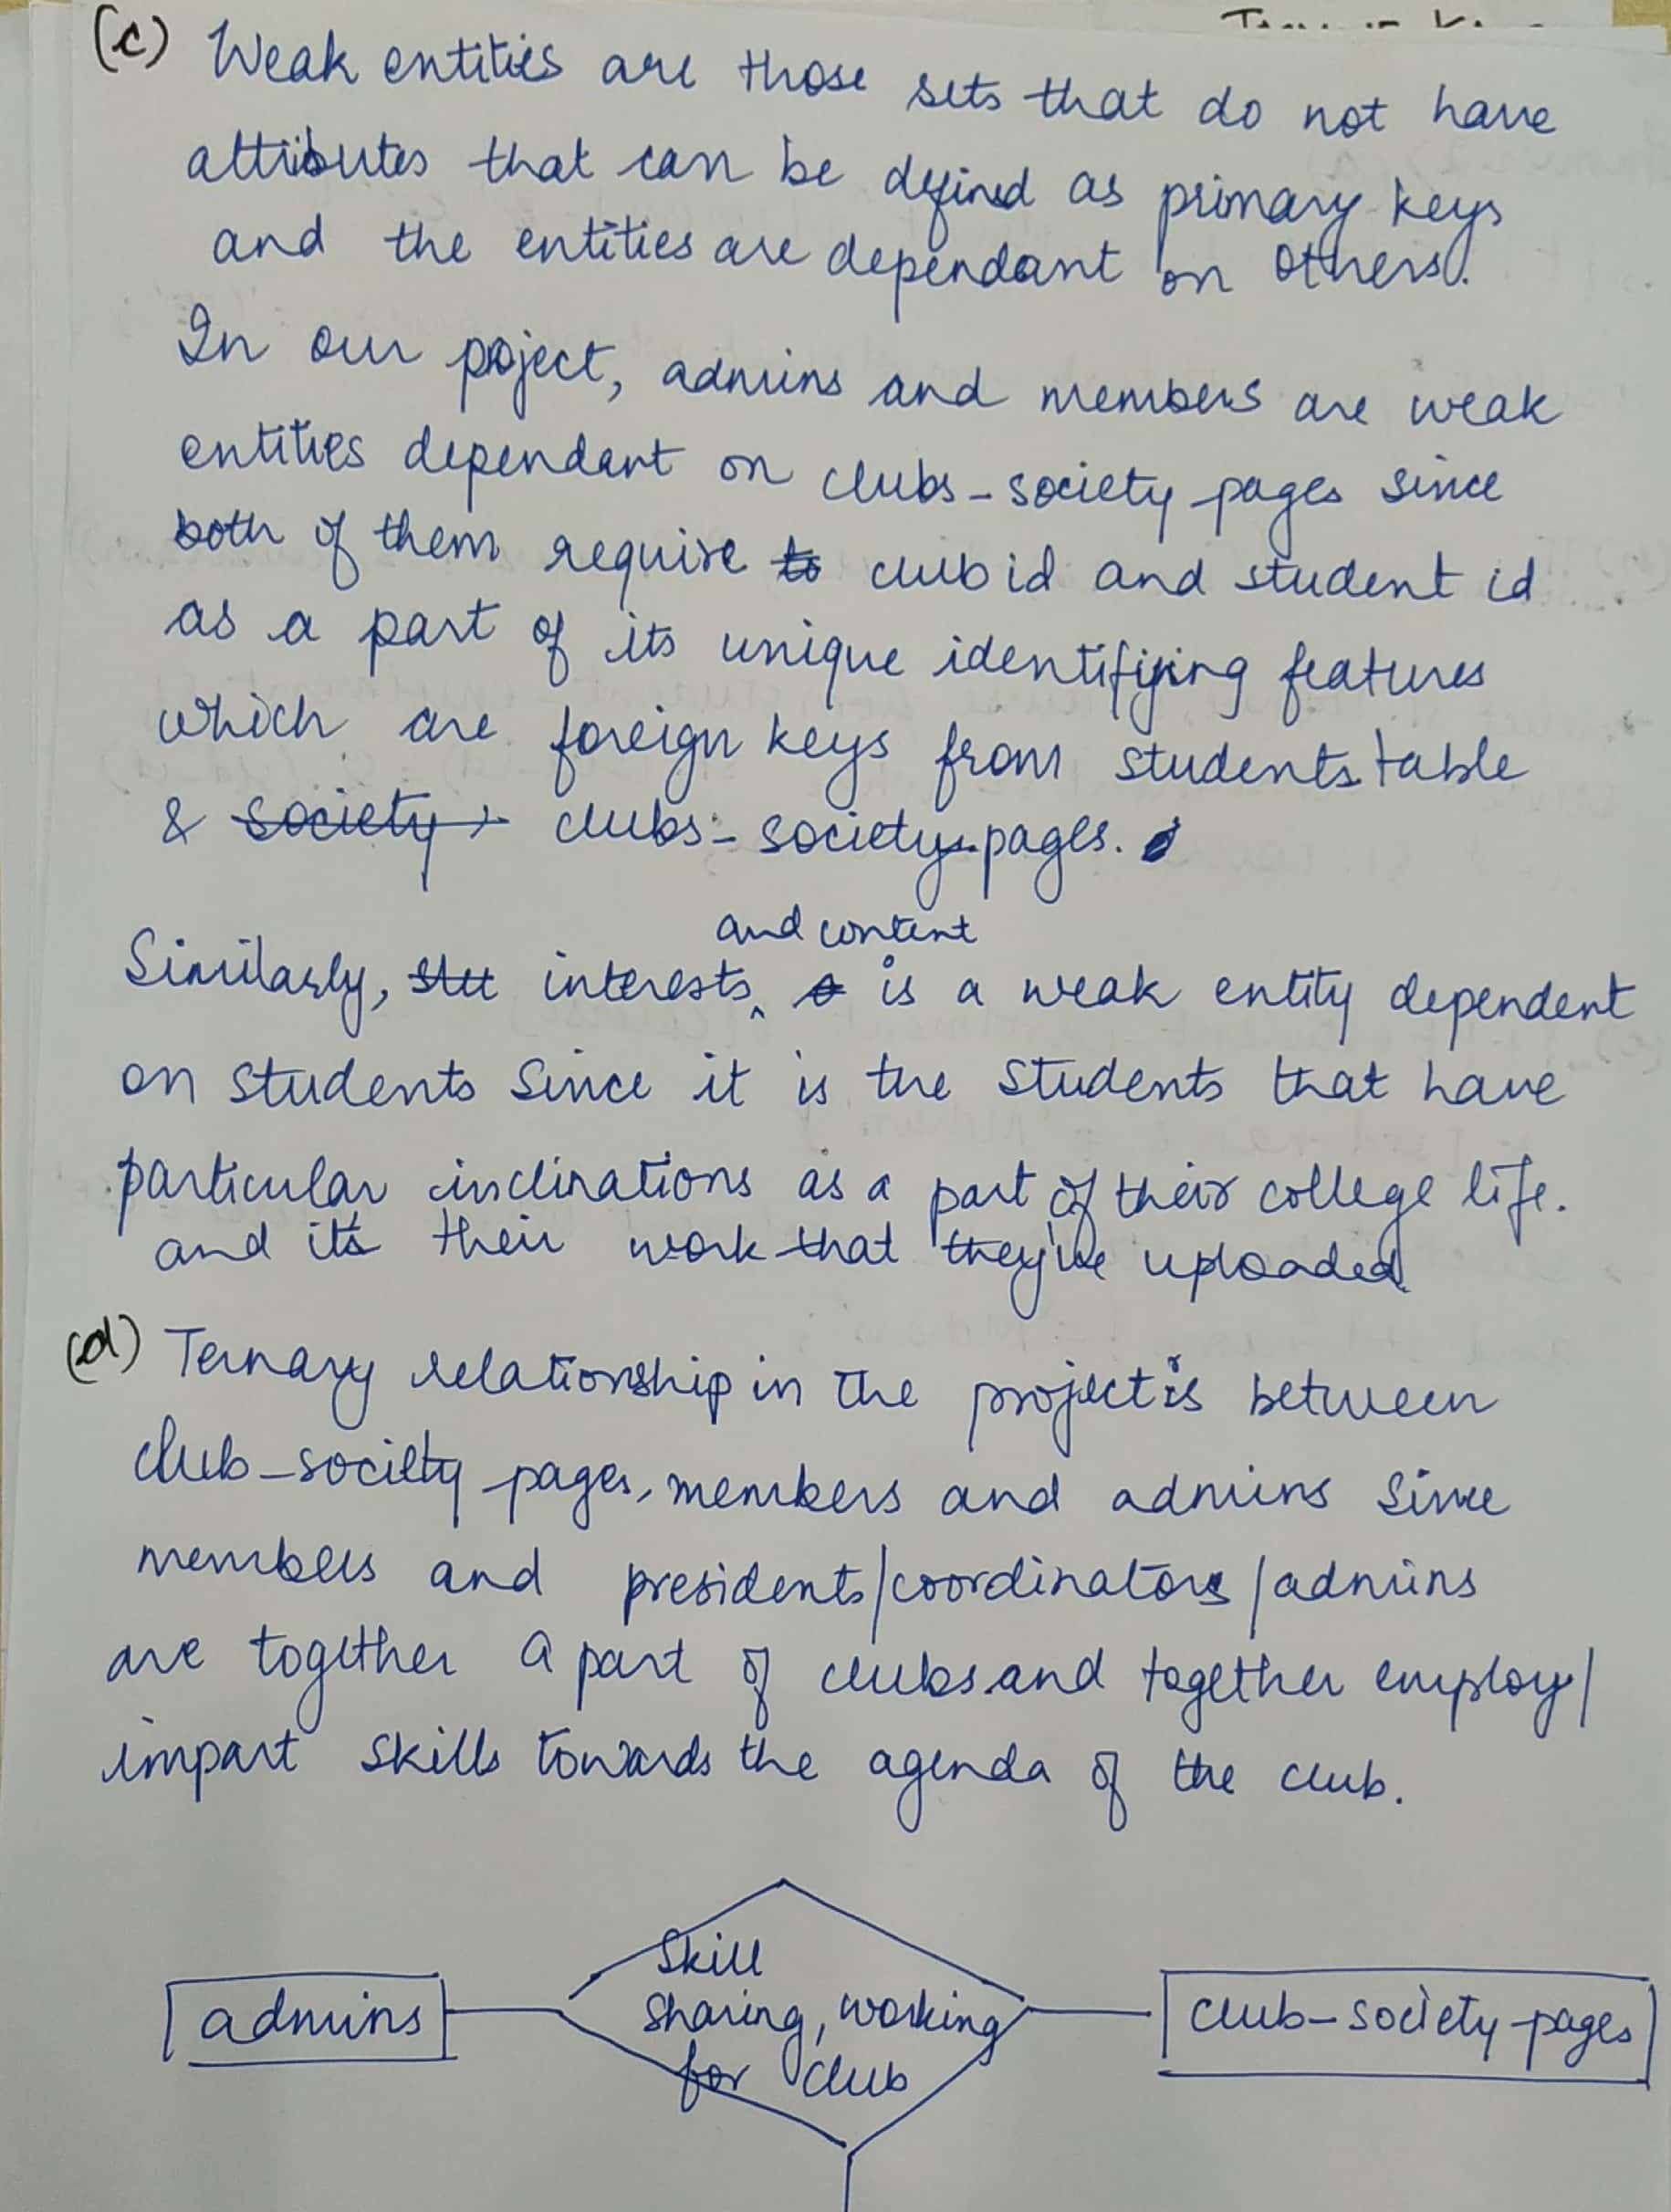 (c) Weak entities are those sets that do not have
attributes that can be defined as primary keys
and the entities are dependant on others.
In our project, admins and members are weak
entities dependant on clubs-society pages since
both of them require to club id and student id
as a part of its unique identifying features
which are foreign keys from students table
& society clubs-society-pages.
and content
Similarly, interests is a weak entity dependent
on students since it is the students that have
particular inclinations as a part of their college life.
and its their work that they've uploaded
(d) Ternary relationship in the project is between
club-society pages, members and admins since
members and presidents/coordinators/admins
are together a part of clubs and together employ/
impart skills towards the agenda of the club.
Skill
admins sharing, working club-society-pages
for club